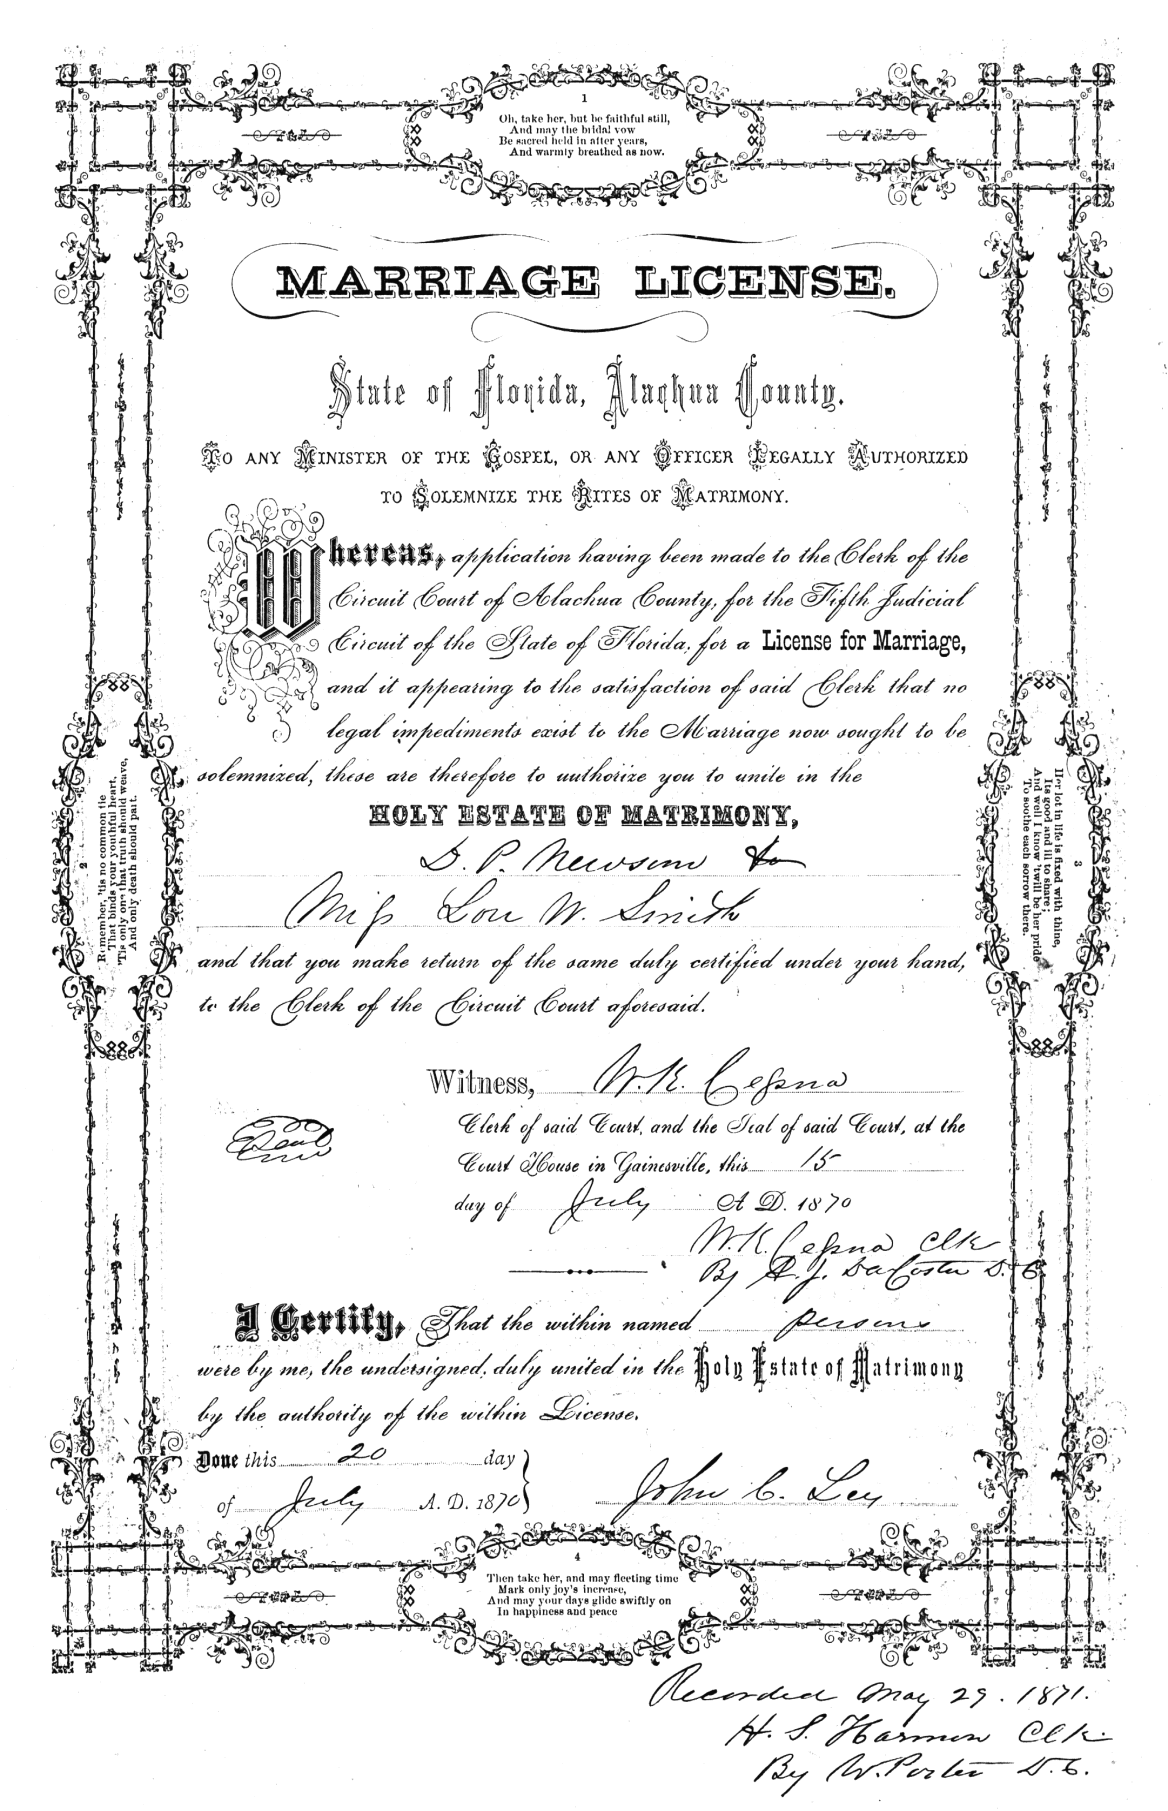 1
Oh, take her, but be faithful still,
And may the bridal vow
Be sacred held in after years,
And warmly breathed as now.
MARRIAGE LICENSE.
State of Florida, Alachua County.
TO ANY MINISTER OF THE GOSPEL, OR ANY OFFICER LEGALLY AUTHORIZED
TO SOLEMNIZE THE RITES OF MATRIMONY.
Whereas, application having been made to the Clerk of the
Circuit Court of Alachua County, for the Fifth Judicial
Circuit of the State of Florida, for a License for Marriage,
and it appearing to the satisfaction of said Clerk that no
legal impediments exist to the Marriage now sought to be
solemnized, these are therefore to authorize you to unite in the
HOLY ESTATE OF MATRIMONY,
D. P. Newsom to
Miss Lou W. Smith
and that you make return of the same duly certified under your hand,
to the Clerk of the Circuit Court aforesaid.
2
Remember, 'tis no common tie
That binds your youthful heart,
'Tis only one that truth should weave,
And only death should part.
3
Her lot in life is fixed with thine,
Its good and ill to share;
And well I know 'twill be her pride
To soothe each sorrow there.
Witness, W. K. Cessna
Clerk of said Court, and the Seal of said Court, at the
Seal
Court House in Gainesville, this 15
day of July A. D. 1870
W. K. Cessna Clk
By A. J. DaCosta D. C.
I Certify, That the within named persons
were by me, the undersigned, duly united in the Holy Estate of Matrimony
by the authority of the within License.
Done this 20 day
of July A. D. 1870
John C. Ley
4
Then take her, and may fleeting time
Mark only joy's increase,
And may your days glide swiftly on
In happiness and peace
Recorded May 29. 1871.
H. S. Harmon Clk
By W. Porter D. C.